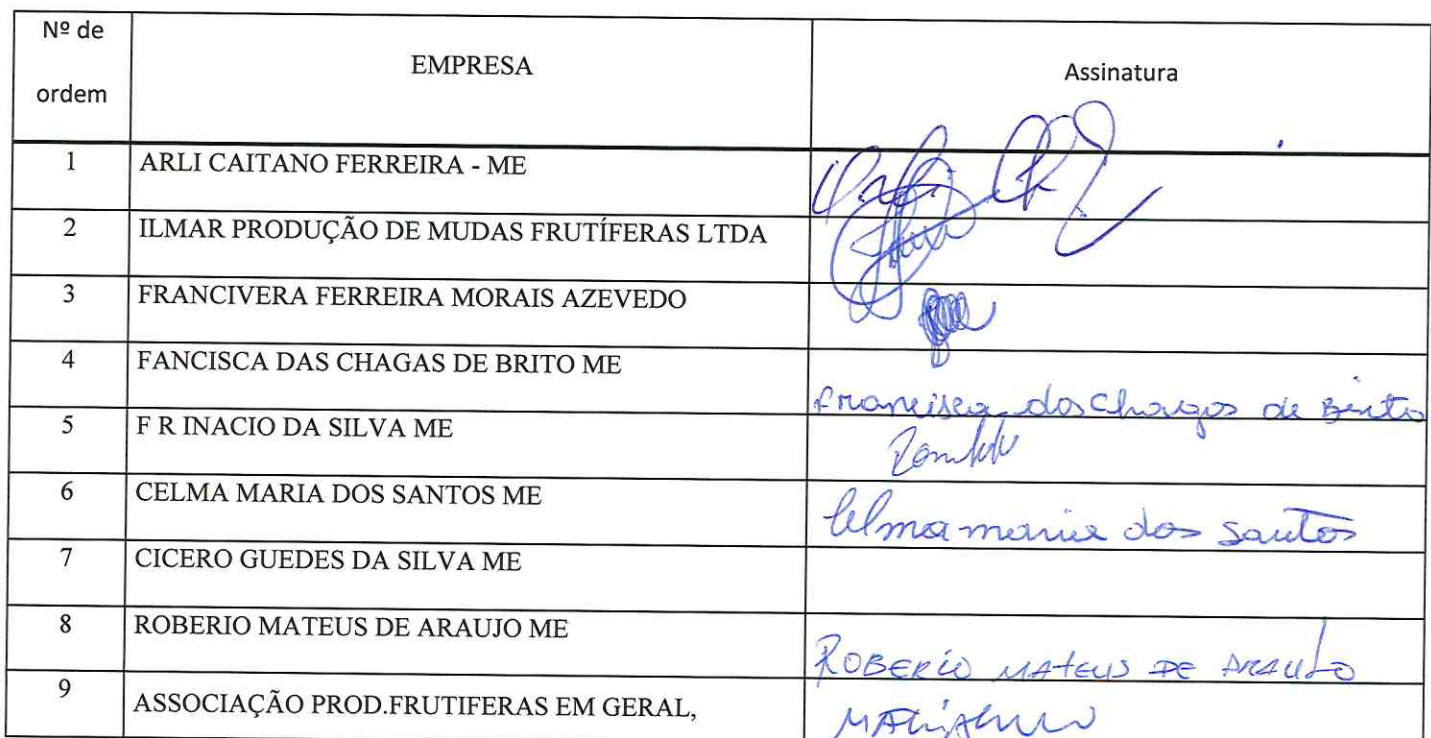 Nº de
ordem
EMPRESA
Assinatura
1 ARLI CAITANO FERREIRA - ME
2 ILMAR PRODUÇÃO DE MUDAS FRUTÍFERAS LTDA
3 FRANCIVERA FERREIRA MORAIS AZEVEDO
4 FANCISCA DAS CHAGAS DE BRITO ME
Francisca das Chagas de Brito
5 F R INACIO DA SILVA ME
6 CELMA MARIA DOS SANTOS ME
Celma maria dos santos
7 CICERO GUEDES DA SILVA ME
8 ROBERIO MATEUS DE ARAUJO ME
ROBERIO MATEUS DE ARAUJO
9 ASSOCIAÇÃO PROD.FRUTIFERAS EM GERAL,